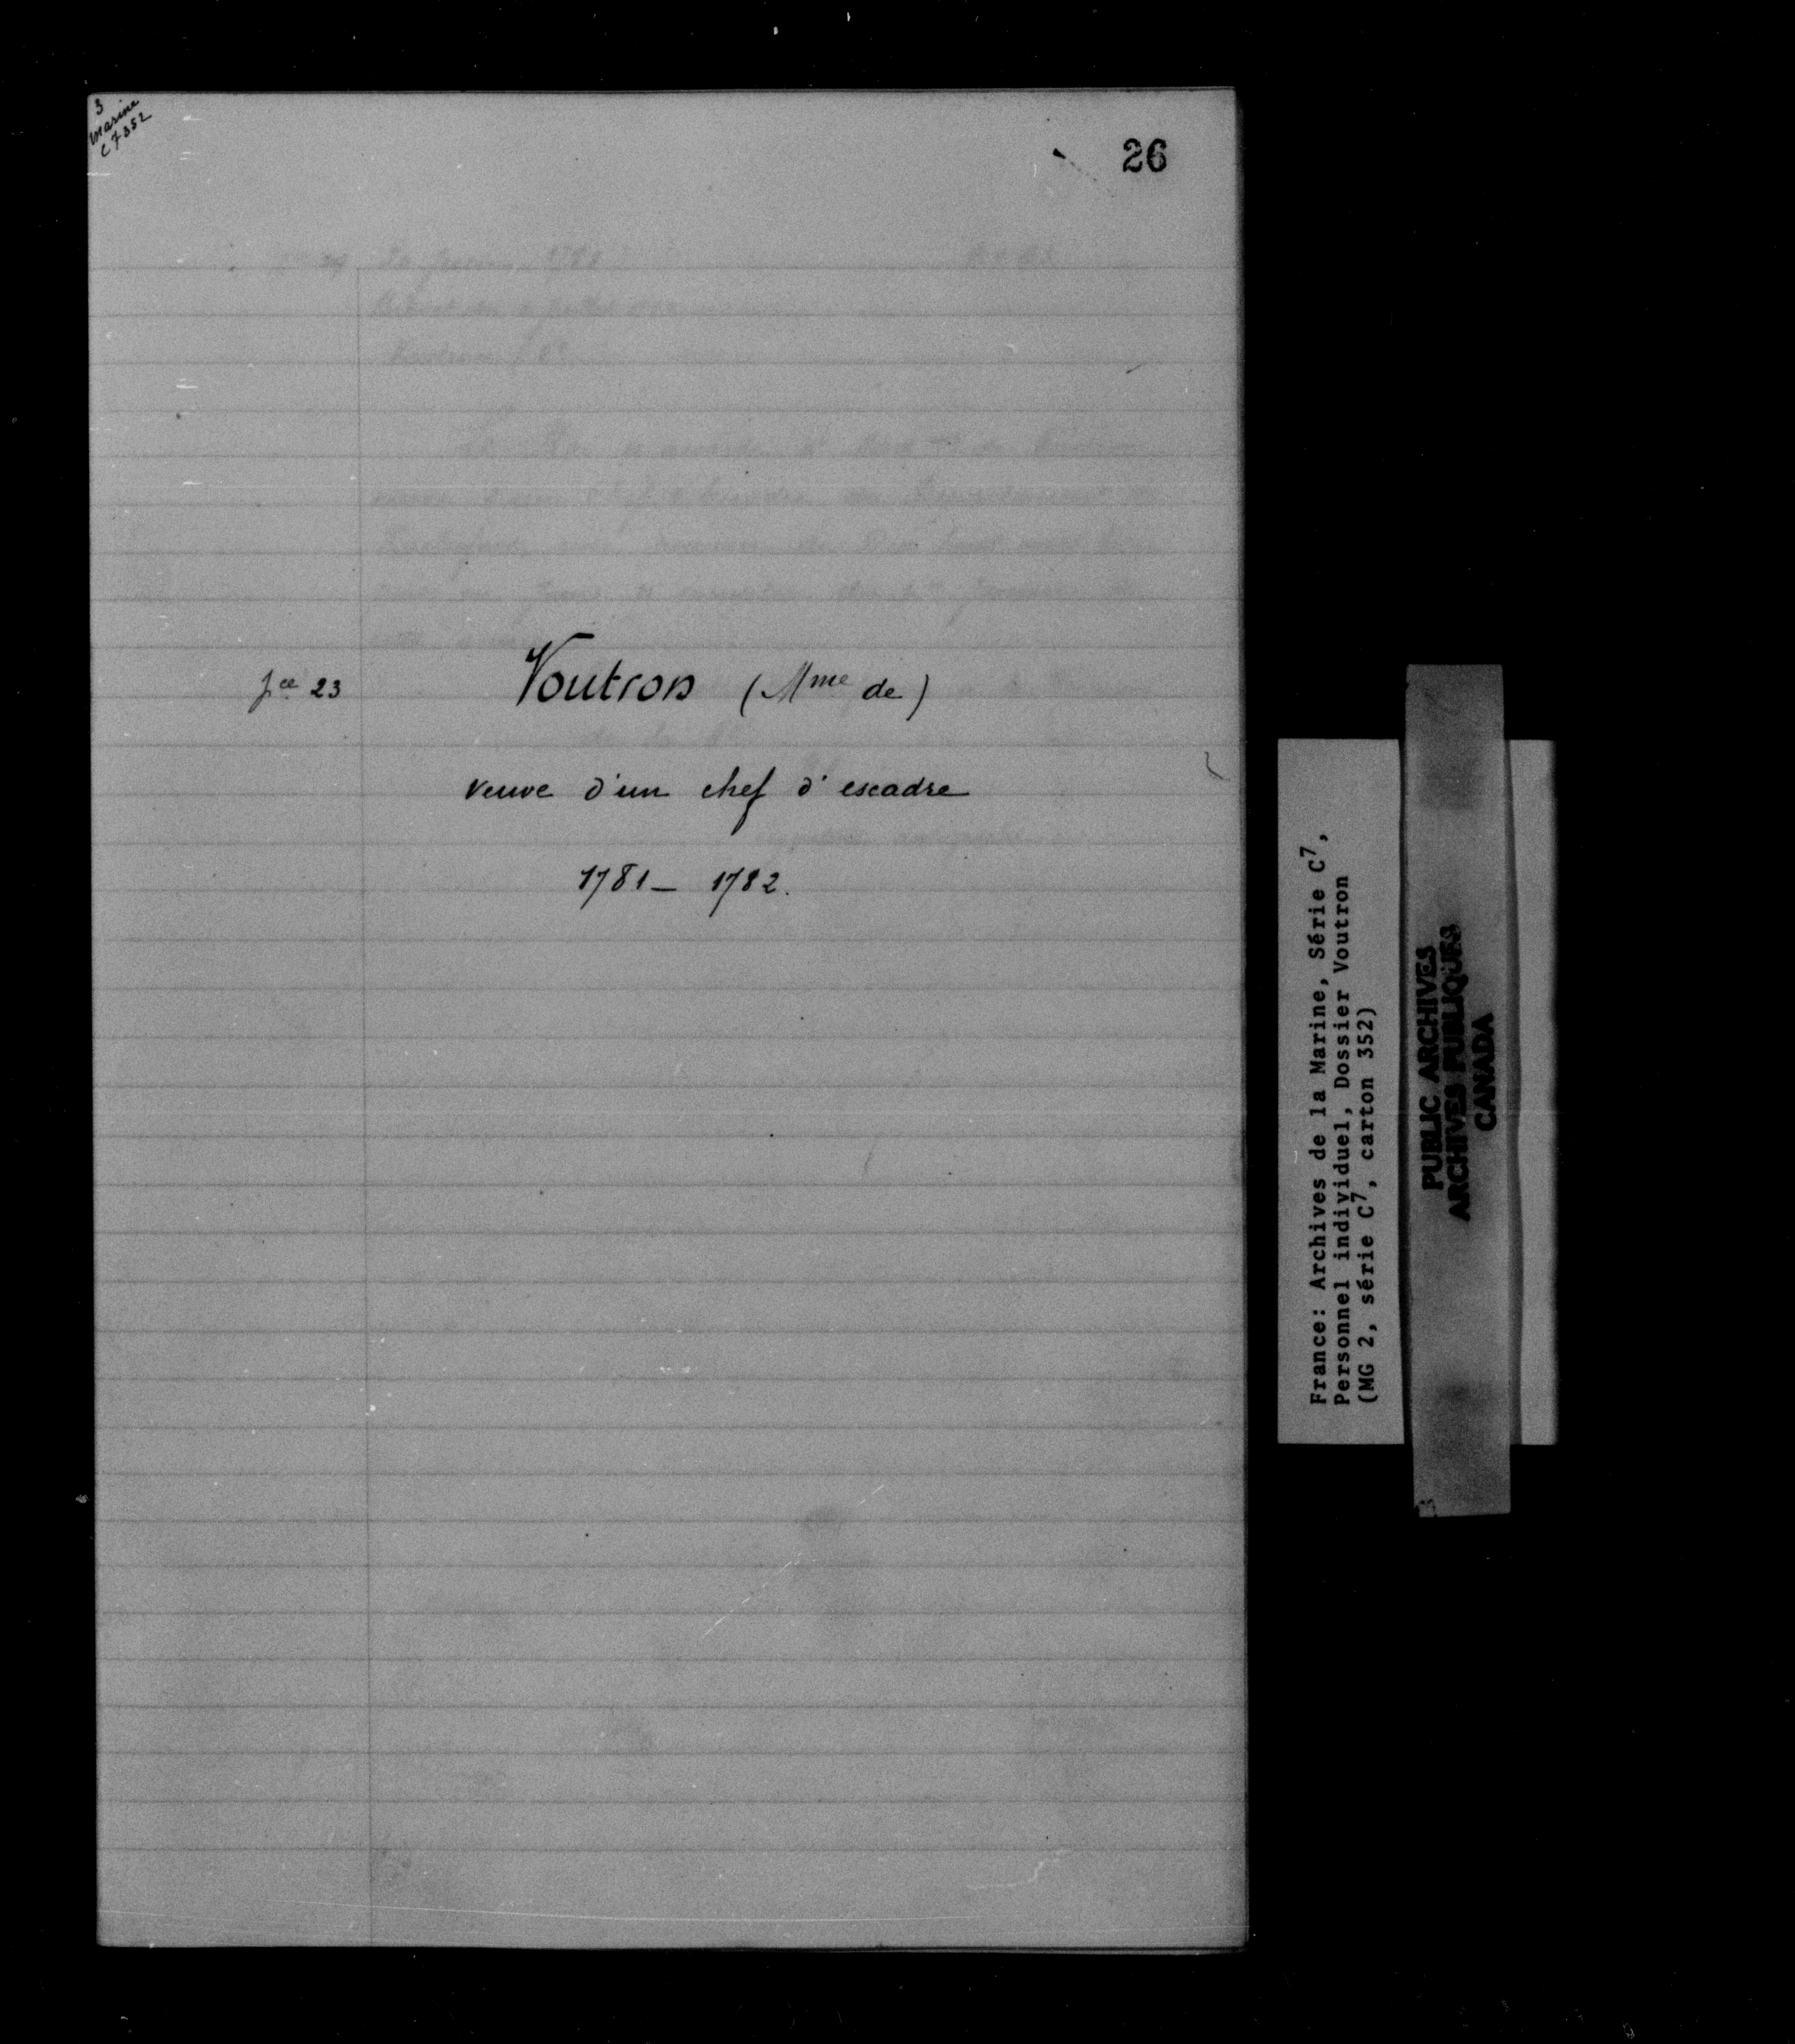 3
Marine
C7 352
26
pce 23
Voutron (Mme de)
veuve d'un chef d'escadre
1781 - 1782.
France: Archives de la Marine, Série C7,
Personnel individuel, Dossier Voutron
(MG 2, série C7, carton 352)
PUBLIC ARCHIVES
ARCHIVES PUBLIQUES
CANADA